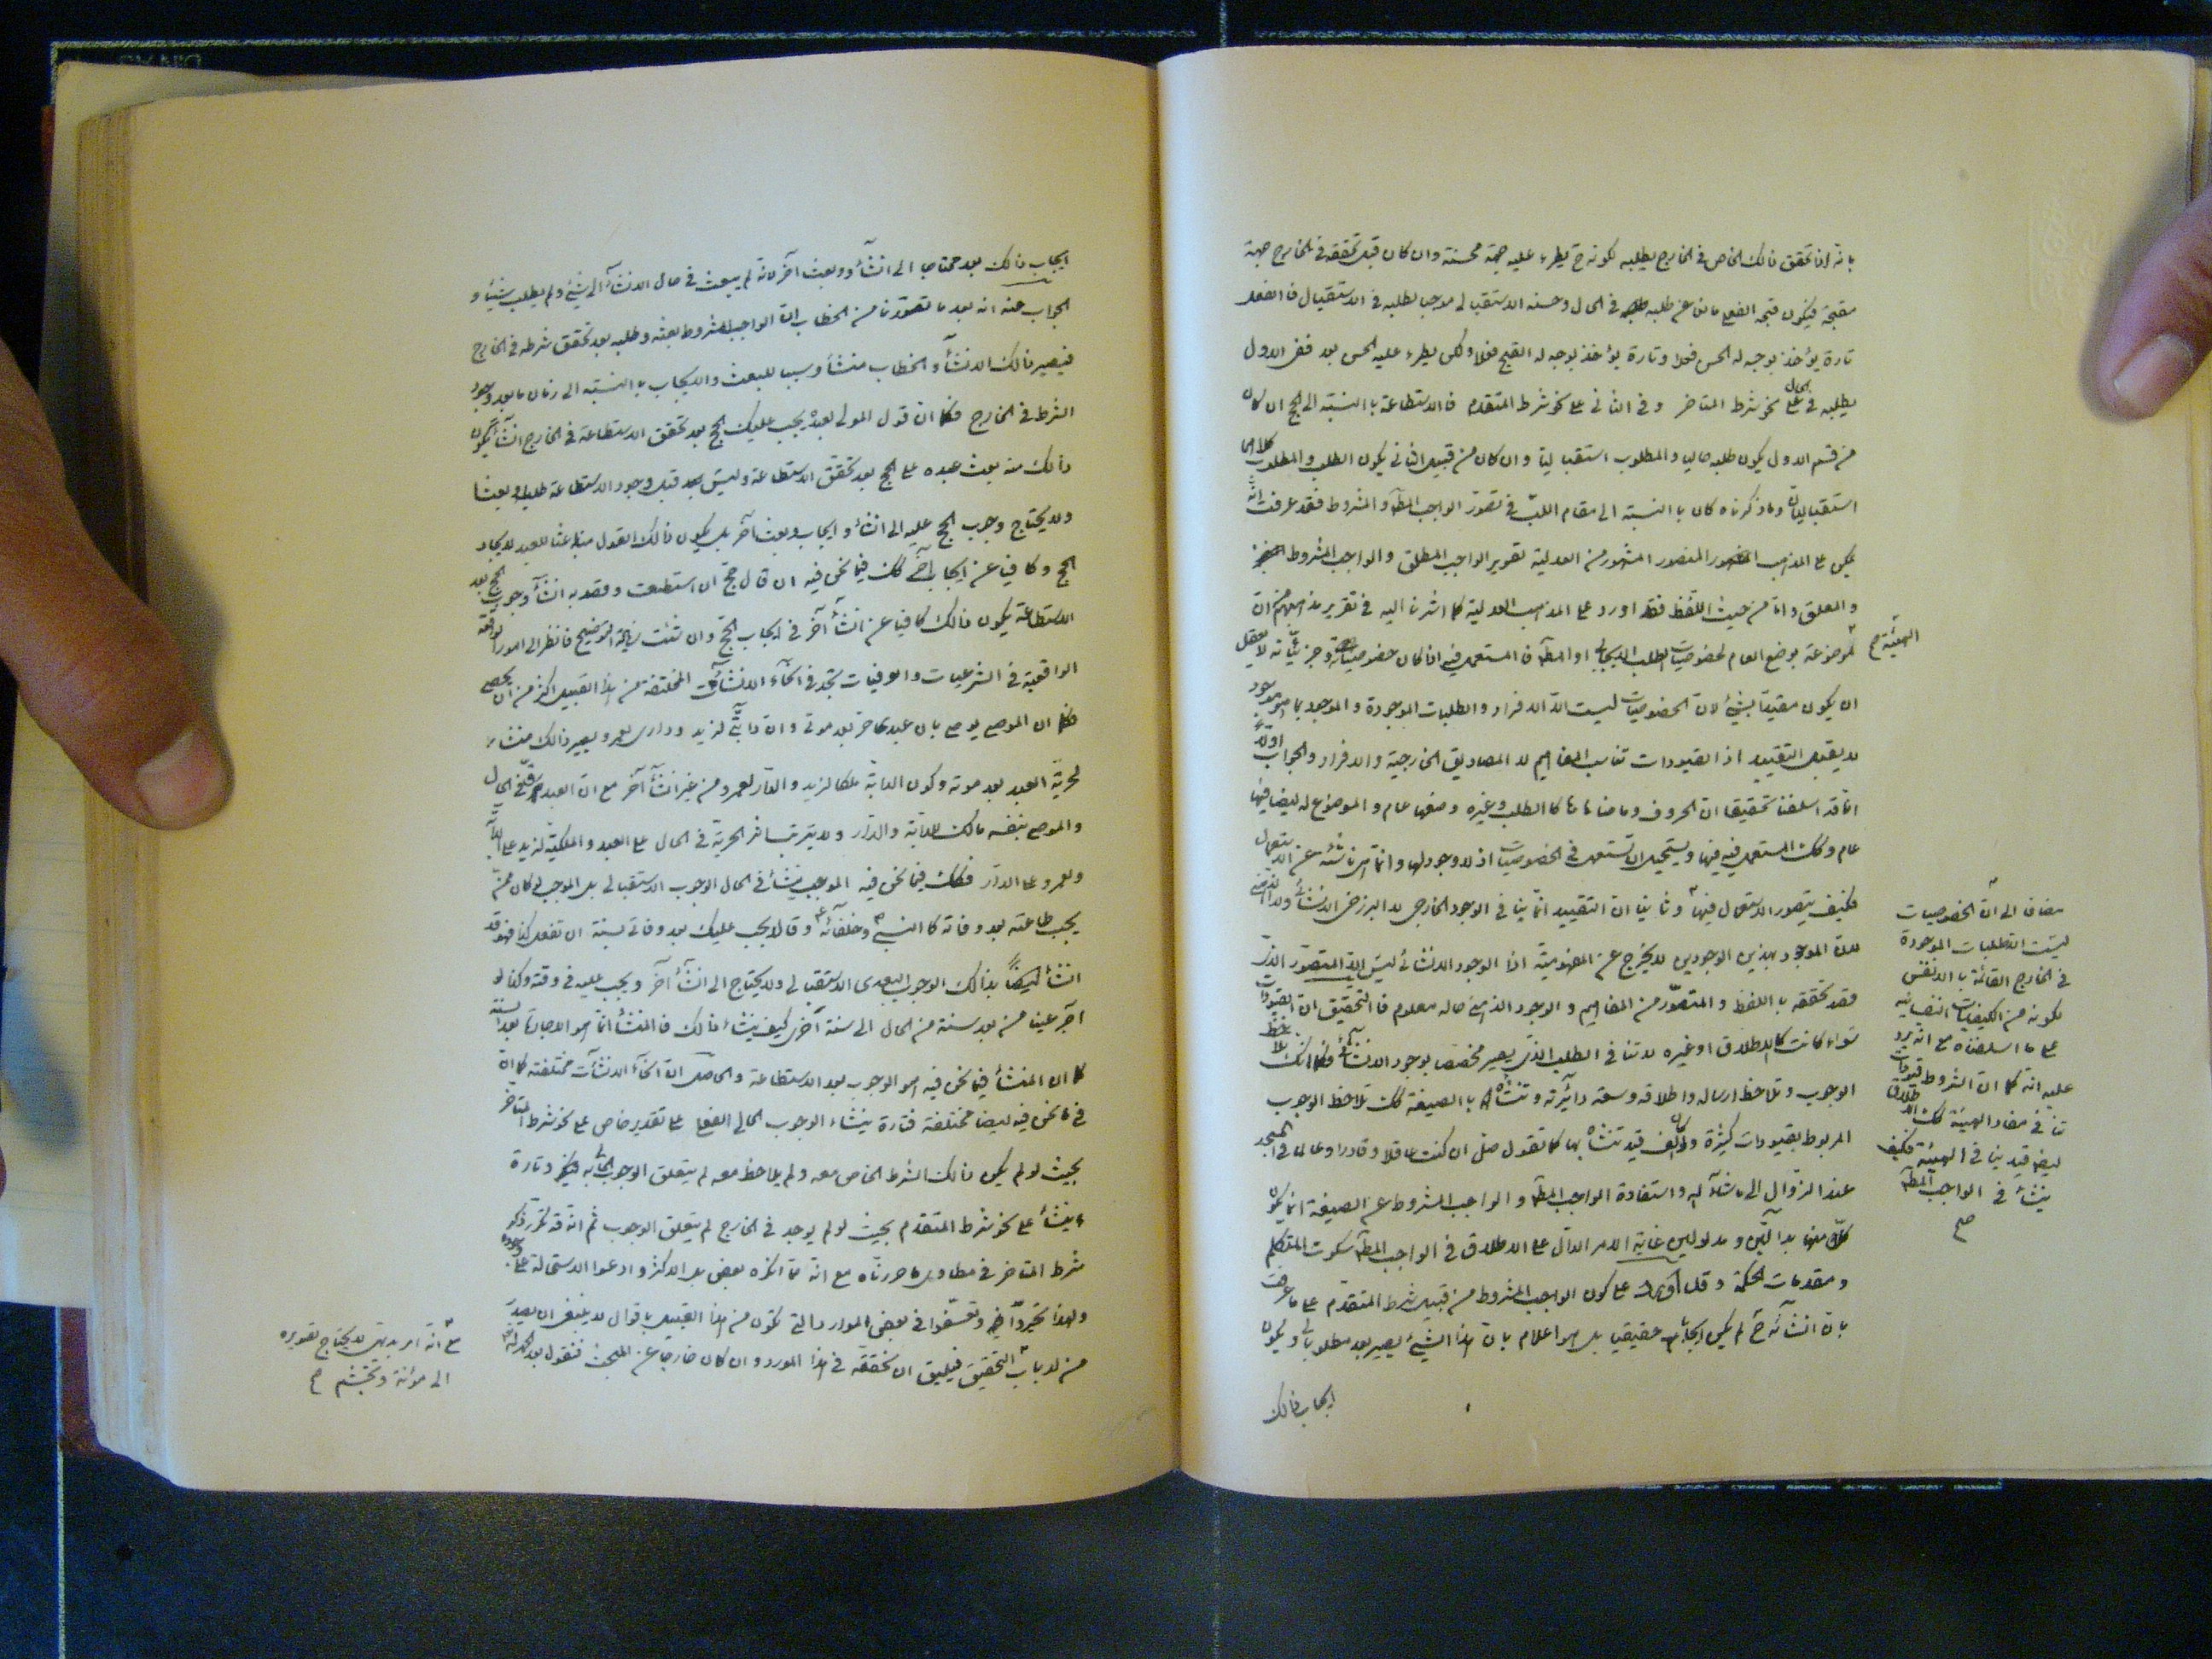 بانه اذا تحقق ذالك الخاص فى الخارج يطلبه لكونه ح يطرء عليه جهة محسنة وان كان قبل تحققه فى الخارج جهة
مقبحة فيكون قبحه الفعلى مانعا عن طلبه فى الحال وحسنه الاستقبالى موجبا لطلبه فى الاستقبال فالفعل
تارة يؤخذ بوجه له الحسن فعلا وتارة يؤخذ بوجه له القبح فعلا ولكن يطرء عليه الحسن بعد ففى الاول
يطلبه فى الحال على نحو شرط المتاخر وفى الثانى على نحو شرط المتقدم فالاستطاعة بالنسبة الى الحج ان كان
من قسم الاول يكون طلبه حاليا والمطلوب استقباليا وان كان من قبيل الثانى يكون الطلب والمطلوب كلاهما
استقباليان وما ذكرناه كان بالنسبة الى مقام اللب فى تصور الواجب المطلق والمشروط فقد عرفت انه
يمكن على المذهب المنصور المشهور من العدلية تصوير الواجب المطلق والواجب المشروط
والمعلق واما من حيث اللفظ فقد اورد على المذهب العدلية كما اشرنا اليه فى تقرير مذاهبهم من ان
الهيئة ح
الموضوعة بوضع العام لخصوصيات الطلب الايجابى او المطلق فالمستعمل فيه اذا كان خصوصياته وجزئياته لا يعقل
ان يكون مقيدا بشيئ لان الخصوصيات ليست الا الافراد والطلبات الموجودة والموجود بما هو موجود
لا يقبل التقييد اذ القيودات تناسب المفاهيم لا المصاديق الخارجية والافراد والجواب اولا
انا قد اسلفنا تحقيقا ان الحروف وما ضاهاها كالطلب وغيره وضعها عام والموضوع له ايضا فيها
عام وكك المستعمل فيه فيها ويستحيل ان تستعمل فى الخصوصيات اذ لا وجود لها وانما هى ناشئة عن الاستعمال
فكيف يتصور الاستعمال فيها وثانيا ان التقييد انما ينافى الوجود الخارجى لا البرزخى الانشائى ولا الذهنى
لان الموجود بهذين الوجودين لا يخرج عن المفهومية اذ الوجود الانشائى ليس الا المتصور الذى
قصد تحققه باللفظ والمتصور من المفاهيم والوجود الذهنى حاله معلوم فالتحقيق ان القيودات
سواء كانت كالاطلاق او غيره لا تنافى الطلب الذى يصير مخصصا بوجود الانشائى فكما انك تلاحظ
الوجوب وتلاحظ ارساله واطلاقه وسعة دائرته وتنشاه بالصيغة كك تلاحظ الوجوب
المربوط بقيودات كثيرة ولو كان الف قيد تنشاه بها كما تقول صل ان كنت عاقلا وقادرا وعالما فى المسجد
عند الزوال الى ما شاء الله واستفادة الواجب المطلق والواجب المشروط عن الصيغة انما يكون
كل منهما بدالين ومدلولين غاية الامر الدال على الاطلاق فى الواجب المطلق سكوت المتكلم
ومقدمات الحكمة وقد اورد على كون الواجب المشروط من قبيل شرط المتقدم على ما عرفت
بان انشائه ح لم يكن ايجابا حقيقيا بل هو اعلام بان هذا الشيئ يصير بعد مطلوبا لى ويكون
ايجاب ذالك
مضافا الى ان الخصوصيات
ليست الا الطلبات الموجودة
فى الخارج القائمة بالنفس
لكونه من الكيفيات النفسانيه
على ما اسلفناه مع انه يرد
عليه انه كما ان الشروط قيودات
تنافى مفاد الهيئة كك الاطلاق
ايضا قيد ينافى الهيئة فكيف
ينشأ فى الواجب المطلق
صح
ايجاب ذالك بعد محتاجا الى انشاء وبعث آخر لانه لم يبعث فى حال الانشاء الى شيئ ولم يطلب شيئا و
الجواب عنه انه بعد ما تصورنا من الخطاب ان الواجب المشروط بعثه وطلبه بعد تحقق شرطه فى الخارج
فيصير ذالك الانشاء والخطاب منشأ وسببا للبعث والايجاب بالنسبة الى زمان ما بعد وجود
الشرط فى الخارج فكما ان قول المولى لعبده يجب عليك الحج بعد تحقق الاستطاعة فى الخارج انشاء يكون
ذالك منه بعث عبده على الحج بعد تحقق الاستطاعة وليس بعد قبل وجود الاستطاعة طلبا وبعثا
ولا يحتاج وجوب الحج عليه الى انشاء وايجاب وبعث آخر بل يكون ذالك القول منه باعثا للعبد لايجاد
الحج وكافيا عن ايجاب آخر كك فيما نحن فيه ان قال حج ان استطعت وقصد به انشاء وجوب الحج بعد
الاستطاعة يكون ذالك كافيا عن انشاء آخر فى ايجاب الحج وان شئت زيادة التوضيح فانظر الى امور
الواقعية فى الشرعيات والعرفيات تجد فى انحاء الانشائات المختلفة من هذا القبيل اكثر من ان يحصى
فكما ان الموصى يوصى بان عبدى حر بعد موتى وان دابتى لزيد ودارى لعمرو ويصير ذالك منشاء
لحرية العبد بعد موته وكون الدابة ملكا لزيد والدار لعمرو من غير انشاء آخر مع ان العبد رق فى الحال
والموصى بنفسه مالك للدابة والدار ولا يترتب اثر الحرية فى الحال على العبد والملكية لزيد على الدابة
ولعمرو على الدار فكك فيما نحن فيه الموجب ينشأ فى الحال الوجوب الاستقبالى بل الموجب لو كان ممن
يجب طاعته بعد وفاته كالنبى ص وخلفائه ع وقال يجب عليك بعد وفاتى بسنة ان تفعل كذا فهو قد
انشأ ايضا بذالك الوجوب البعدى الاستقبالى ولا يحتاج الى انشاء آخر ويجب عليه فى وقته وكذا لو
آجر عينا من بعد سنة من الحال الى سنة آخرى كيف ينشاء ذالك فالمنشأ انما هو الاجارة بعد السنة
كما ان المنشأ فيما نحن فيه هو الوجوب بعد الاستطاعة والحاصل ان انحاء الانشائات مختلفة كما ان
فى ما نحن فيه ايضا مختلفة فتارة ينشاء الوجوب الحالى الفعلى على تقدير خاص على نحو شرط المتاخر
بحيث لو لم يكن ذالك الشرط الخاص معه ولم يلاحظ معه لم يتعلق الوجوب الحالى به وتارة
ينشأ على نحو شرط المتقدم بحيث لو لم يوجد فى الخارج لم يتعلق الوجوب ثم انه قد تكرر ذكر
شرط المتاخر فى مطاوى ما حررناه مع انه مما انكره بعض بل الاكثر وادعوا الاستحالة على وجوده
ولهذا تحيروا وتعسفوا فى بعض الموارد التى تكون من هذا القبيل باقوال لا ينبغى ان يصدر
من ارباب التحقيق فيليق ان نحققه فى هذا المورد وان كان خارجا عن المبحث فنقول بعد الحمد لله
مع انه امر بديهى لا يحتاج تصويره
الى مؤنة وتجشم ح